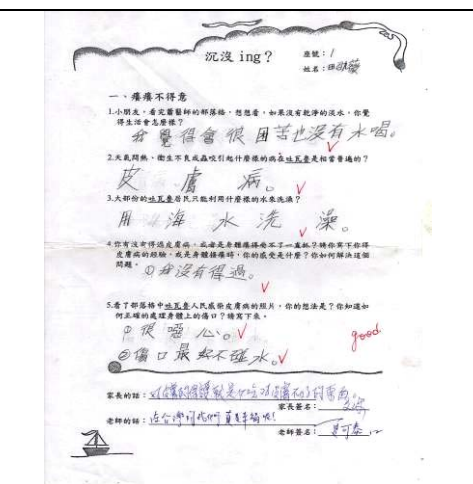 沉沒 ing？
座號：1
姓名：
一、癢癢不得意
1.小朋友，看完蕭醫師的部落格，想想看，如果沒有乾淨的淡水，你覺
得生活會怎麼樣？
我覺得會很困苦也沒有水喝。
2.天氣悶熱、衛生不良或蟲咬引起什麼樣的病在吐瓦魯是相當普遍的？
皮膚病。
3.大部份的吐瓦魯居民只能利用什麼樣的水來洗澡？
用海水洗澡。
4.你有沒有得過皮膚病，或者是身體癢得受不了一直抓？請你寫下你得
皮膚病的經驗，或是身體搔癢時，你的感受是什麼？你如何解決這個
問題。
①我沒有得過。
5.看了部落格中吐瓦魯人民感染皮膚病的照片，你的想法是？你知道如
何正確的處理身體上的傷口？請寫下來。
①很噁心。
good
②傷口最好不碰水。
家長的話：
家長簽名：
老師的話：
老師簽名：